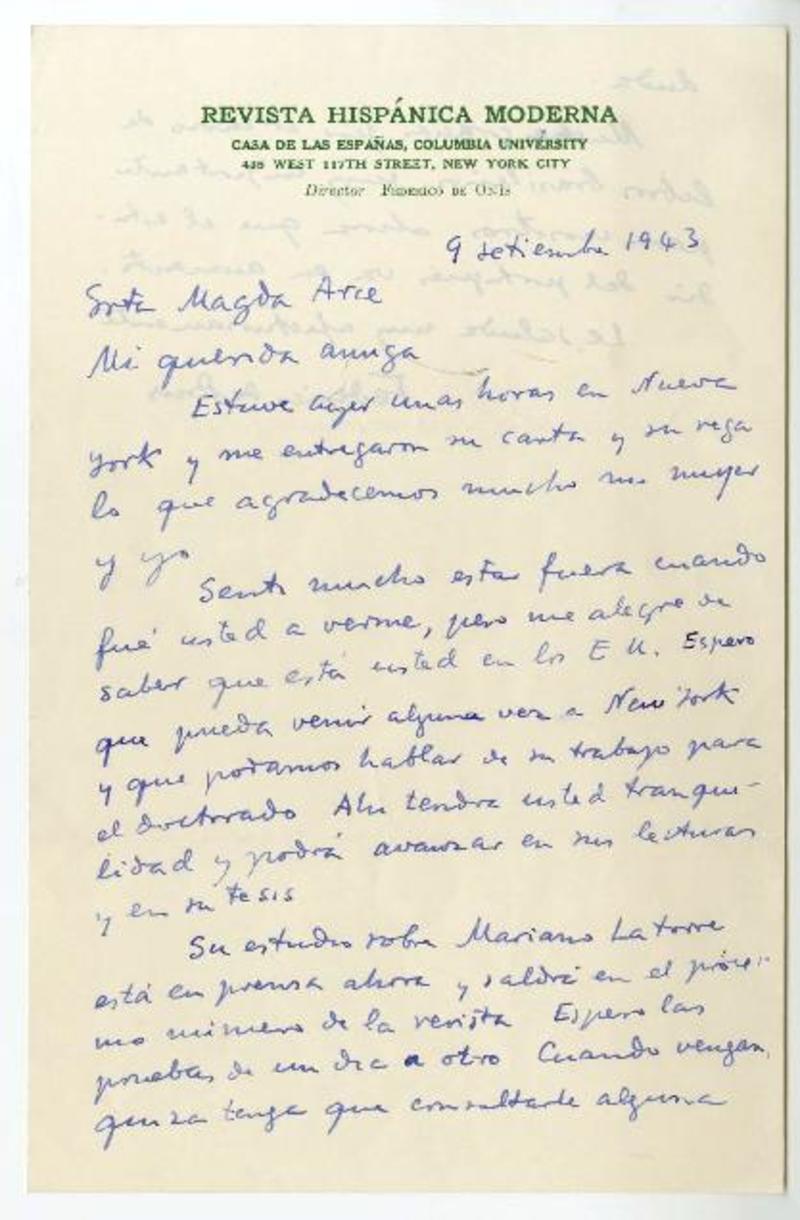 REVISTA HISPÁNICA MODERNA
CASA DE LAS ESPAÑAS, COLUMBIA UNIVERSITY
435 WEST 117TH STREET, NEW YORK CITY
Director FEDERICO DE ONÍS
9 setiembre 1943
Srta Magda Arce
Mi querida amiga
Estuve ayer unas horas en Nueva
York y me entregaron su carta y su rega
lo que agradecemos mucho mi mujer
y yo
Sentí mucho estar fuera cuando
fué usted a verme, pero me alegre de
saber que está usted en los E U. Espero
que pueda venir alguna vez a New York
y que podamos hablar de su trabajo para
el doctorado Ahi tendra usted tranqui-
lidad y podrá avanzar en sus lecturas
y en su tesis
Su estudio sobre Mariano Latorre
está en prensa ahora y saldrá en el próxi-
mo número de la revista Espero las
pruebas de un dia a otro Cuando vengan,
quiza tenga que consultarle alguna